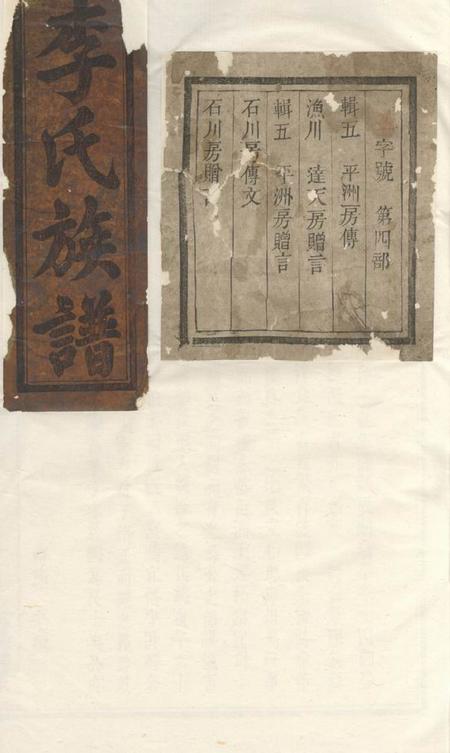 李氏族譜
字號 第四部
輯五 平洲房傳
漁川 達天房贈言
輯五 平洲房贈言
石川房傳文
石川房贈言